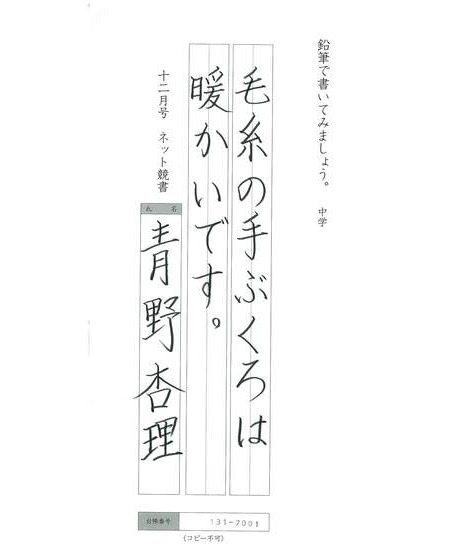 鉛筆で書いてみましょう。 中学
毛糸の手ぶくろは
暖かいです。
十二月号 ネット競書
氏 名
青野杏理
台帳番号 131-7001
(コピー不可)